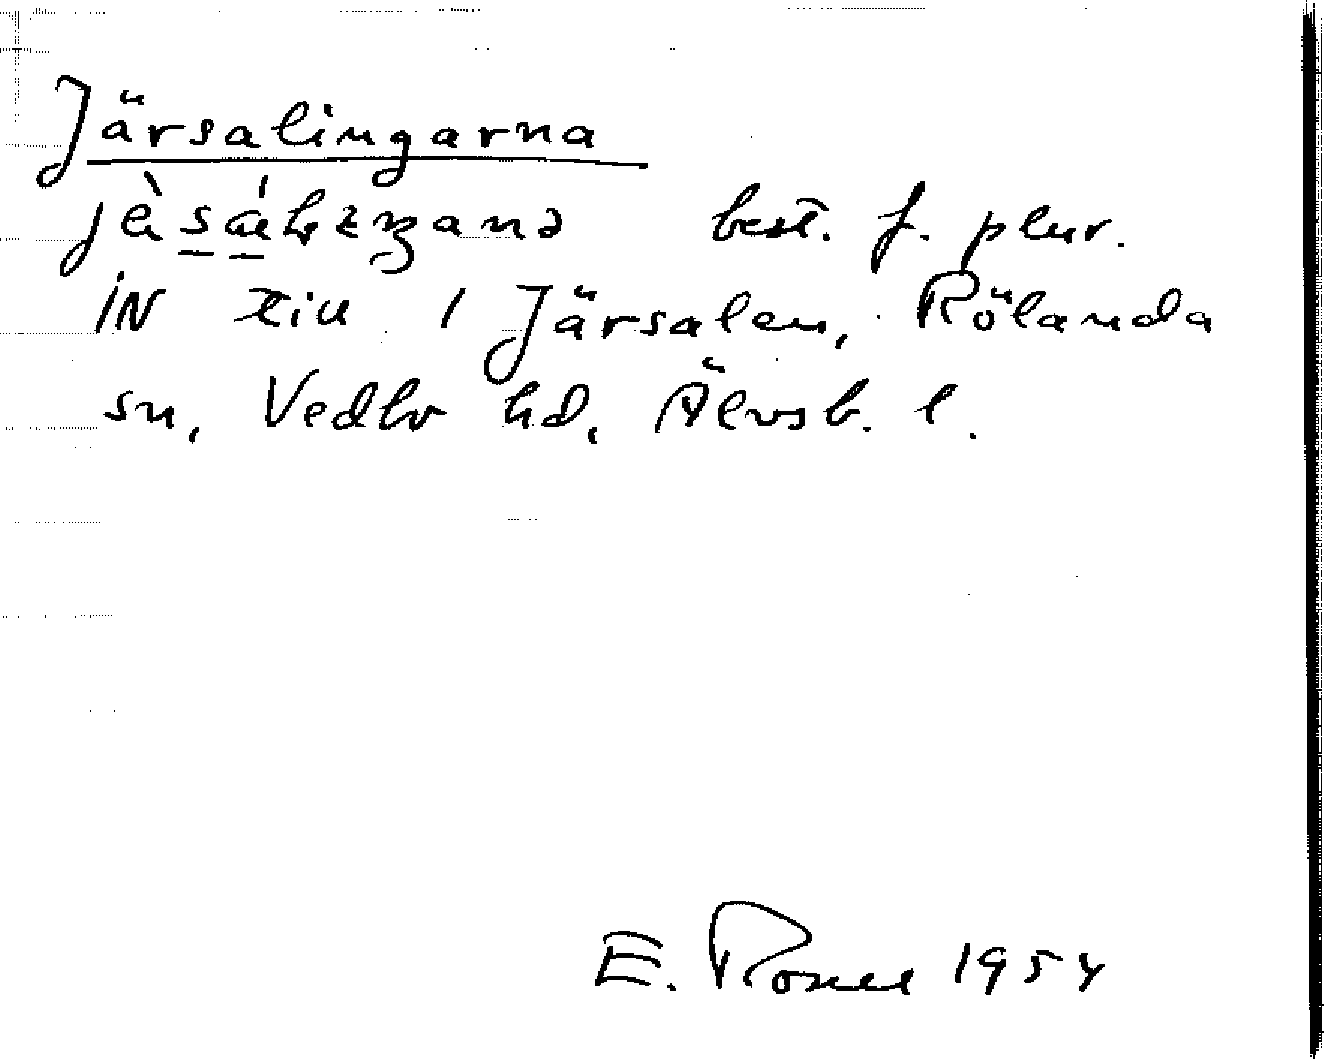 Järsalingarna
best. f. plur.
IN till 1 Järsalen, Rölanda
sn, Vedbo hd, Älvsb. l.
E. Rosell 1954